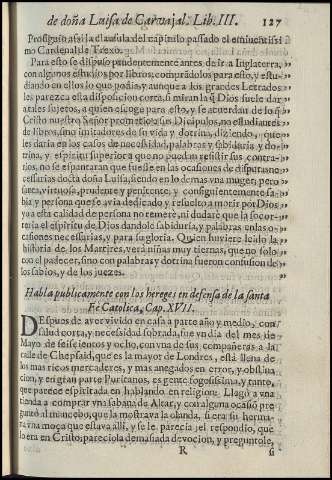 de doña Luisa de Carvajal. Lib. III. 127
Prosiguio assi la clausula del capitulo passado el eminentissi
mo Cardenal de Trexo.
Para esto se dispuso prudentemente antes de ir a Inglaterra, „
con algunos estudios por libros; comprādolos para esto, y estu- „
diando en ellos lo que podia, y aunque a los grandes Letrados „
les parezca esta disposicion corta, si miran lo q̄ Dios suele dar a „
tales sujetos, a quien escoge para esto, y se acuerdan de lo q̄ „
Christo nuestro Señor prometio a sus Dicipulos, no estudiantes „
de libros, sino imitadores de su vida y dotrina, diziendo, que „
les daria en los casos de necessidad, palabras y sabiduria y do- „
trina, y espiritu superior a que no puedan resistir sus contra- „
rios, no se espantaran que fuesse en las ocasiones de disputas no „
cessarias docta doña Luisa, siendo en lo demas vna muger pen- „
satiua, virtuosa, prudente y penitente, y consiguientemente sa- „
bia y persona que se auia dedicado y resuelto a morir por Dios „
y a a esta calidad de persona no temerè, ni dudarè que la socor- „
teria el espiritu de Dios dandole sabiduria, y palabras en las o- „
casiones necessarias, y para su gloria. Quien huuiere leido la „
historia de los Martires, verà niñas muy tiernas, que no solo „
con el padecer, sino con palabras y dotrina fueron confusion de „
los sabios, y de los juezes. „
Habla publicamente con los hereges en defensa de la santa
Fè Catolica. Cap. XVII.
DEspues de aver vivido en casa a parte año y medio, con
salud corta, y necessidad sobrada, fue vn dia del mes de
Mayo de seiscientos y ocho, con vna de sus compañeras a la
calle de Chepsaid, que es la mayor de Londres, està llena de
los mas ricos mercaderes, y mas anegados en error, y obstina
cion, y en gran parte Puritanos, es gente fogosissima, y tanto,
que parece espiritada en hablando en religion. Llegò a vna
tienda a comprar vna sabana de Altar, y con alguna ocasiō pre
guntò al mancebo, que la mostrava la olanda, si era su herma-
na vna moça que estava alli, y se le parecia, el respondio, que
lo era en Christo; pareciola demasiada devocion, y preguntole,
R si